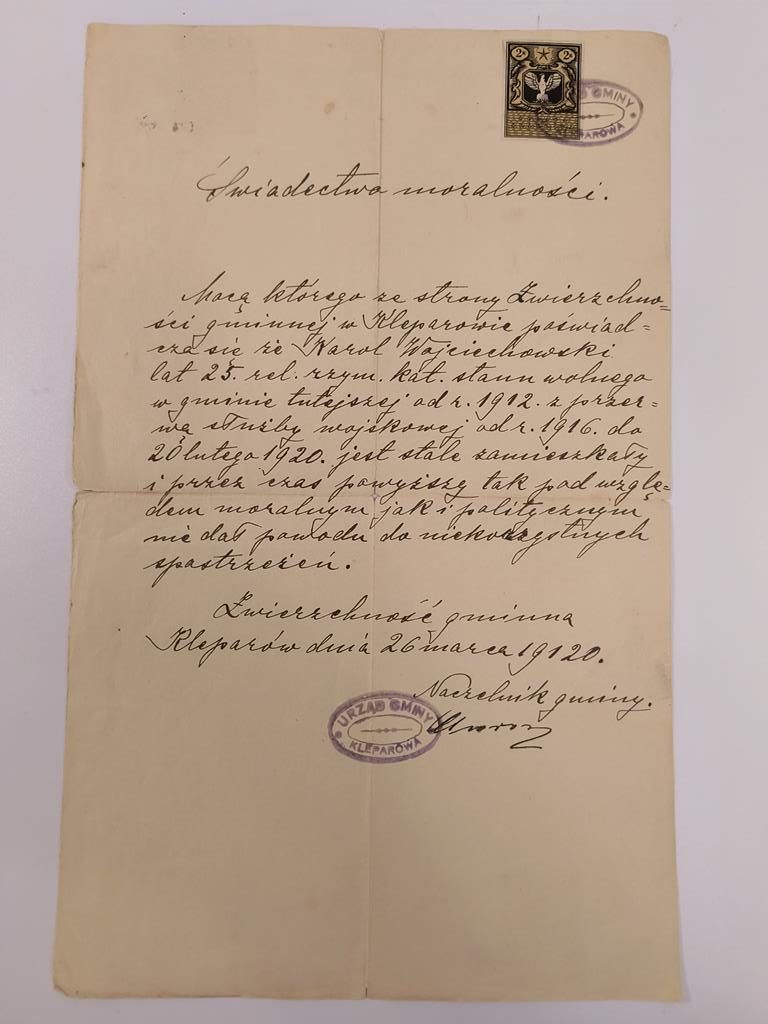 2 2
URZĄD GMINY
KLEPAROWA
Świadectwo moralności.
Mocą którego ze strony Zwierzchno=
ści gminnej w Kleparowie poświad=
cza się że Karol Wojciechowski
lat 25. rel. rzym. kat. stanu wolnego
w gminie tutejszej od r. 1912. z przer=
wą służby wojskowej od r. 1916. do
20 lutego 1920. jest stale zamieszkały
i przez czas powyższy tak pod wzglę=
dem moralnym jak i politycznym
nie dał powodu do niekorzystnych
spostrzeżeń.
Zwierzchność gminna
Kleparów dnia 26 marca 19120.
Naczelnik gminy.
URZĄD GMINY
KLEPAROWA